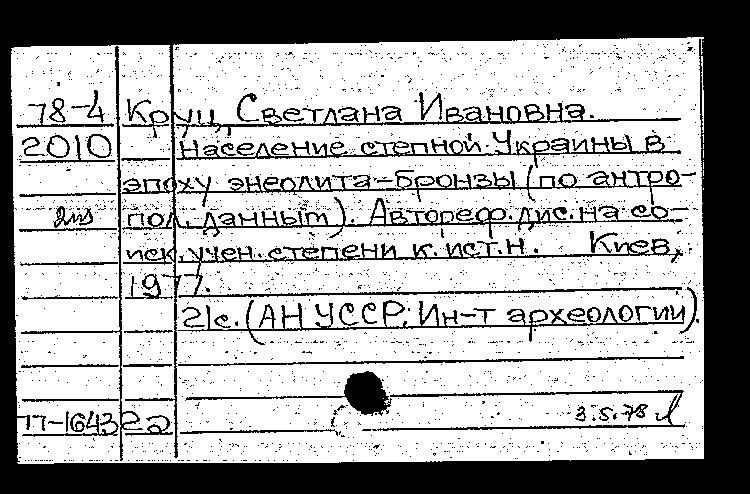 78-4 Круц, Светлана Ивановна.
2010 Население степной Украины в
эпоху энеолита-бронзы (по антро-
пол. данным). Автореф. дис. на со-
иск. учен. степени к. ист. н. Киев,
1977.
21с. (АН УССР; Ин-т археологии).
77-16432а 3.5.78